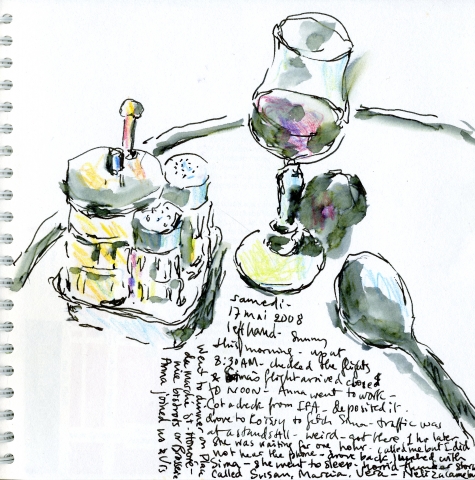 samedi -
17 mai 2008
left hand - sunny
this morning - up at
8:30 AM - checked the flights
& flight arrived closer
to NOON! - Anna went to work -
Got a check from IPA - deposited it.
drove to ROISSY to fetch - traffic was
at a standstill - weird - got there 1 hr later
She was waiting for one hour - called me but I did
not hear the phone - drove back, with
Sima - She went to sleep -
called Susan, Marcia, Vera -
Went to dinner on Place
du Marché St. Honoré -
nice bistrots or
Anna joined us